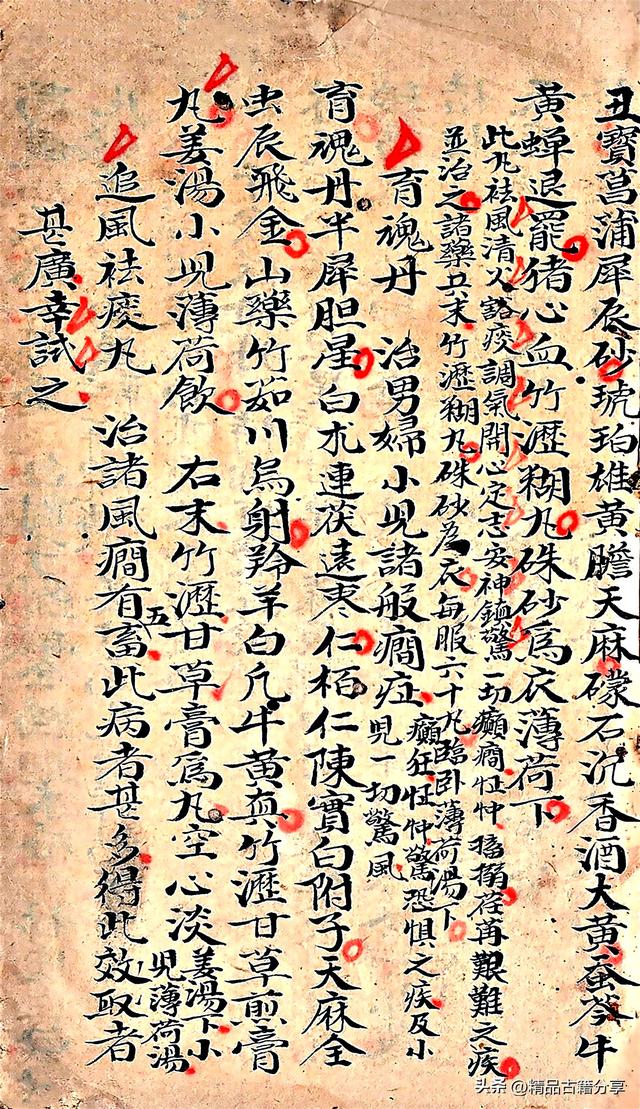 丑寶菖蒲犀辰砂琥珀雄黃膽天麻礞石沉香酒大黃蚕芩牛
黃蝉退罷猪心血竹瀝糊丸硃砂爲衣薄荷下
此丸祛風清火豁痰調氣開心定志安神鎮驚一切癲癎怔忡搐搦荏苒艱難之疾
並治之諸藥共末竹瀝糊丸硃砂爲衣每服六十丸臨卧薄荷湯下
育魂丹 治男婦小児諸般癎症
癲狂怔忡驚恐惧之疾及小
児一切驚風
育魂丹半犀胆星白朮連茯遠枣仁栢仁陳實白附子天麻全
虫辰飛金山藥竹茹川烏射羚羊白凡牛黃真竹瀝甘草煎膏
丸姜湯小児薄荷飲 右末竹瀝甘草膏爲丸空心淡
姜湯下小
児薄荷湯
追風祛痰丸 治諸風癎有五畜此病者甚多得此效取者
甚廣幸試之
头条 @精品古籍分享